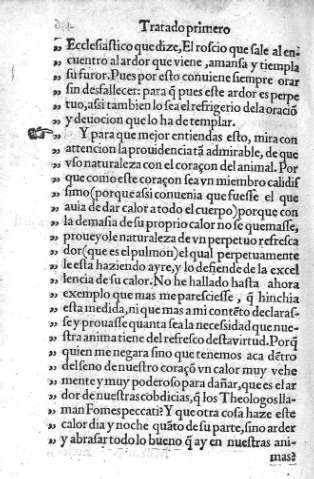 Tratado primero
„ Ecclesiastico que dize, El roscio que sale al en
„ cuentro al ardor que viene, amansa y tiempla
„ su furor. Pues por esto conuiene siempre orar
„ sin desfallecer: para q̃ pues este ardor es perpe
„ tuo, assi tambien lo sea el refrigerio de la oraciõ
„ y deuocion que lo ha de templar.
☞ „ Y para que mejor entiendas esto, mira con
„ attencion la prouidencia tã admirable, de que
„ vso naturaleza con el coraçon del animal. Por
„ que como este coraçon sea vn miembro calidis
„ simo (porque assi conuenia que fuesse el que
„ auia de dar calor a todo el cuerpo) porque con
„ la demasia de su proprio calor no se quemasse,
„ proueyole naturaleza de vn perpetuo refresca
„ dor (que es el pulmon) el qual perpetuamente
„ le esta haziendo ayre, y lo defiende de la excel
„ lencia de su calor. No he hallado hasta ahora
„ exemplo que mas me paresciesse, q̃ hinchia
„ esta medida, ni que mas a mi contẽto declaras-
„ se y prouasse quanta sea la necessidad que nue-
„ stra anima tiene del refresco desta virtud. Porq̃
„ quien me negara sino que tenemos aca dẽtro
„ del seno de nuestro coraçõ vn calor muy vehe
„ mente y muy poderoso para dañar, que es el ar
„ dor de nuestras cobdicias, q̃ los Theologos lla-
„ man Fomes peccati? Y que otra cosa haze este
„ calor dia y noche quãto de su parte, sino arder
„ y abrasar todo lo bueno q̃ ay en nuestras ani-
mas?